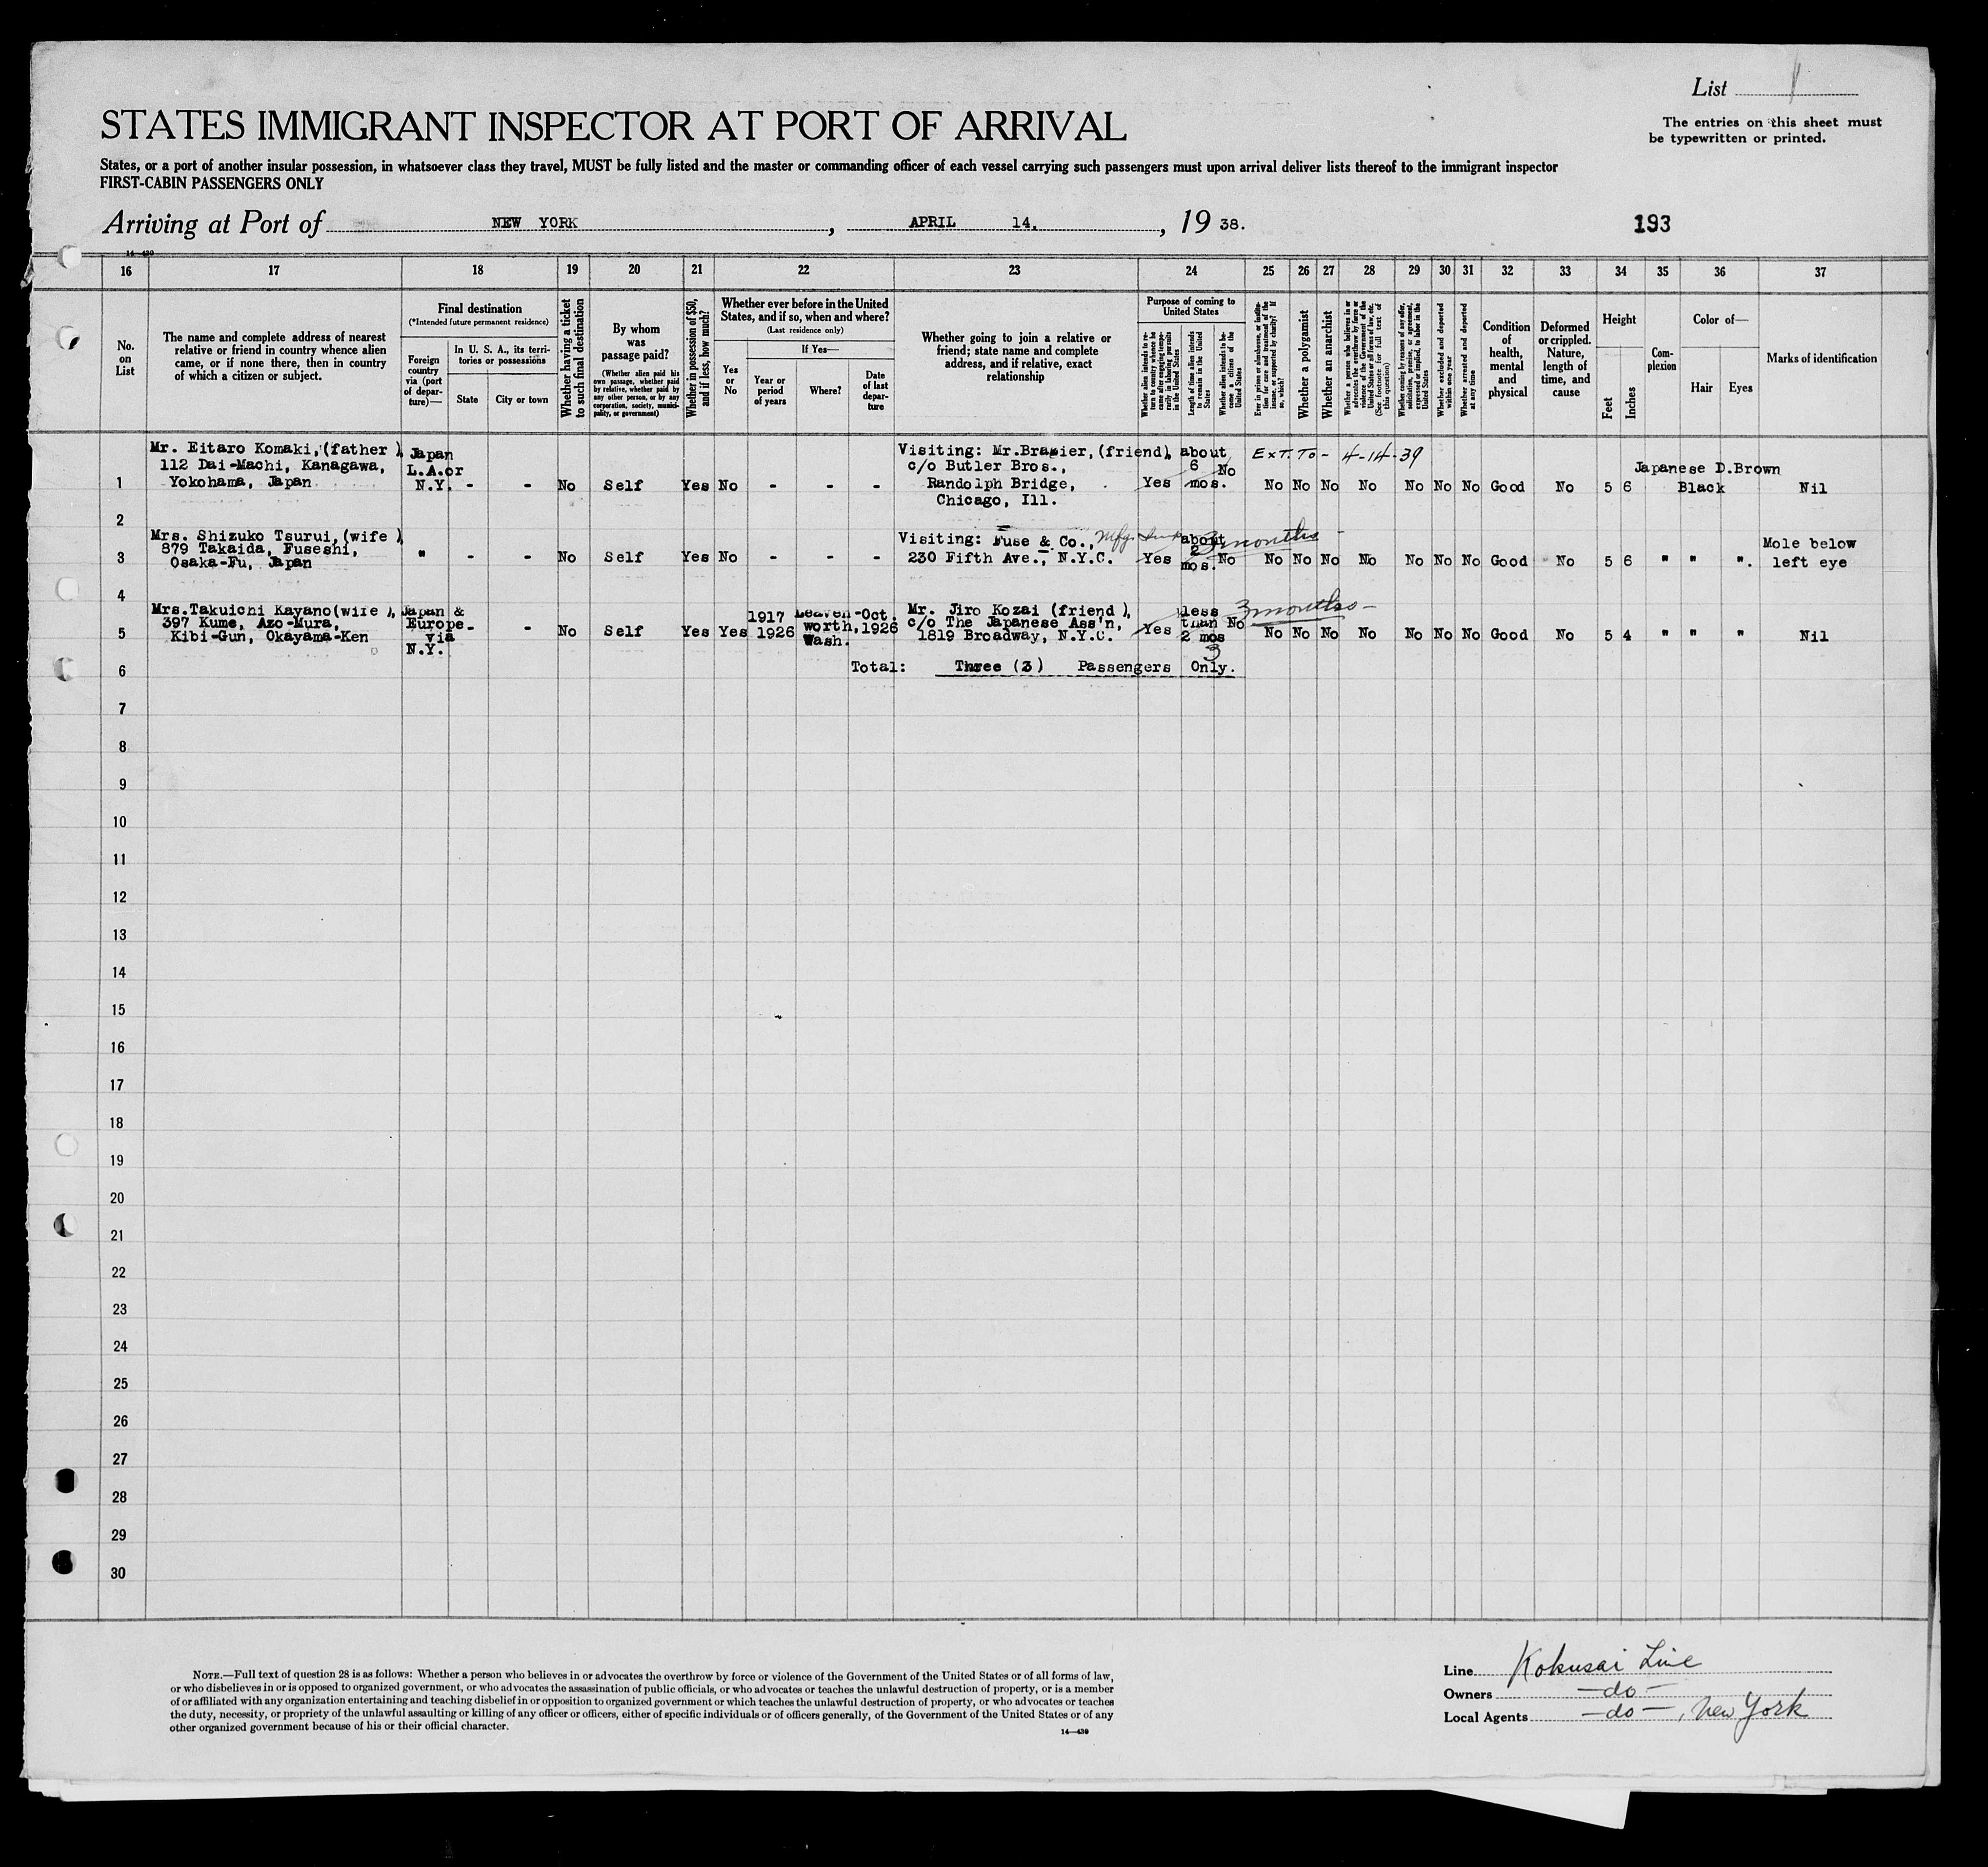 List 1
The entries on this sheet must
be typewritten or printed.
STATES IMMIGRANT INSPECTOR AT PORT OF ARRIVAL
States, or a port of another insular possession, in whatsoever class they travel, MUST be fully listed and the master or commanding officer of each vessel carrying such passengers must upon arrival deliver lists thereof to the immigrant inspector
FIRST-CABIN PASSENGERS ONLY
Arriving at Port of NEW YORK, APRIL 14, 19 38.
193
14—430
16 17 18 19 20 21 22 23 24 25 26 27 28 29 30 31 32 33 34 35 36 37
No.
on
List
The name and complete address of nearest
relative or friend in country whence alien
came, or if none there, then in country
of which a citizen or subject.
Final destination
(*Intended future permanent residence)
Foreign
country
via (port
of depar-
ture)—
In U. S. A., its terri-
tories or possessions
State
City or town
Whether having a ticket
to such final destination
By whom
was
passage paid?
(Whether alien paid his
own passage, whether paid
by relative, whether paid by
any other person, or by any
corporation, society, munici-
pality, or government)
Whether in possession of $50,
and if less, how much?
Whether ever before in the United
States, and if so, when and where?
(Last residence only)
Yes
or
No
If Yes—
Year or
period
of years
Where?
Date
of last
depar-
ture
Whether going to join a relative or
friend; state name and complete
address, and if relative, exact
relationship
Purpose of coming to
United States
Whether alien intends to re-
turn to country whence he
came after engaging tempo-
rarily in laboring pursuits
in the United States
Length of time alien intends
to remain in the United
States
Whether alien intends to be-
come a citizen of the
United States
Ever in prison or almshouse, or institu-
tion for care and treatment of the
insane, or supported by charity? If
so, which?
Whether a polygamist
Whether an anarchist
Whether a person who believes in or
advocates the overthrow by force or
violence of the Government of the
United States or all forms of law, etc.
(See footnote for full text of
this question)
Whether coming by reason of any offer,
solicitation, promise, or agreement,
expressed or implied, to labor in the
United States
Whether excluded and deported
within one year
Whether arrested and deported
at any time
Condition
of
health,
mental
and
physical
Deformed
or crippled.
Nature,
length of
time, and
cause
Height
Feet
Inches
Com-
plexion
Color of—
Hair
Eyes
Marks of identification
1
Mr. Eitaro Komaki, (father),
112 Dai-Machi, Kanagawa,
Yokohama, Japan
Japan
L.A.or
N.Y. - -
No Self Yes No - - -
Visiting: Mr.Brazier, (friend),
c/o Butler Bros.,
Randolph Bridge,
Chicago, Ill.
Yes
about
6
mos.
No
EXT. TO - 4-14-39
No No No No No No No Good No 5 6
Japanese D.Brown
Black
Nil
2
3
Mrs. Shizuko Tsurui, (wife),
879 Takaida, Fuseshi,
Osaka-Fu, Japan
" - - No Self Yes No - - -
Visiting: Fuse & Co.,
230 Fifth Ave., N.Y.C.
Yes
about
2
mos.
3 months -
No No No No No No No No Good No 5 6 " " ".
Mole below
left eye
4
5
Mrs.Takuichi Kayano(wife),
397 Kume, Azo-Mura,
Kibi-Gun, Okayama-Ken
Japan &
Europe-
via
N.Y.
-
No Self Yes Yes
1917
1926
Leaven-
worth,
Wash.
Oct.
1926
Mr. Jiro Kozai (friend),
c/o The Japanese Ass'n,
1819 Broadway, N.Y.C.
Yes
less
than
2 mos
3
No
3 months -
No No No No No No No Good No 5 4 " " " Nil
6
Total: Three (3) Passengers Only.
7
8
9
10
11
12
13
14
15
16
17
18
19
20
21
22
23
24
25
26
27
28
29
30
NOTE.—Full text of question 28 is as follows: Whether a person who believes in or advocates the overthrow by force or violence of the Government of the United States or of all forms of law,
or who disbelieves in or is opposed to organized government, or who advocates the assassination of public officials, or who advocates or teaches the unlawful destruction of property, or is a member
of or affiliated with any organization entertaining and teaching disbelief in or opposition to organized government or which teaches the unlawful destruction of property, or who advocates or teaches
the duty, necessity, or propriety of the unlawful assaulting or killing of any officer or officers, either of specific individuals or of officers generally, of the Government of the United States or of any
other organized government because of his or their official character.
14—430
Line Kokusai Line
Owners —do—
Local Agents —do—, New York